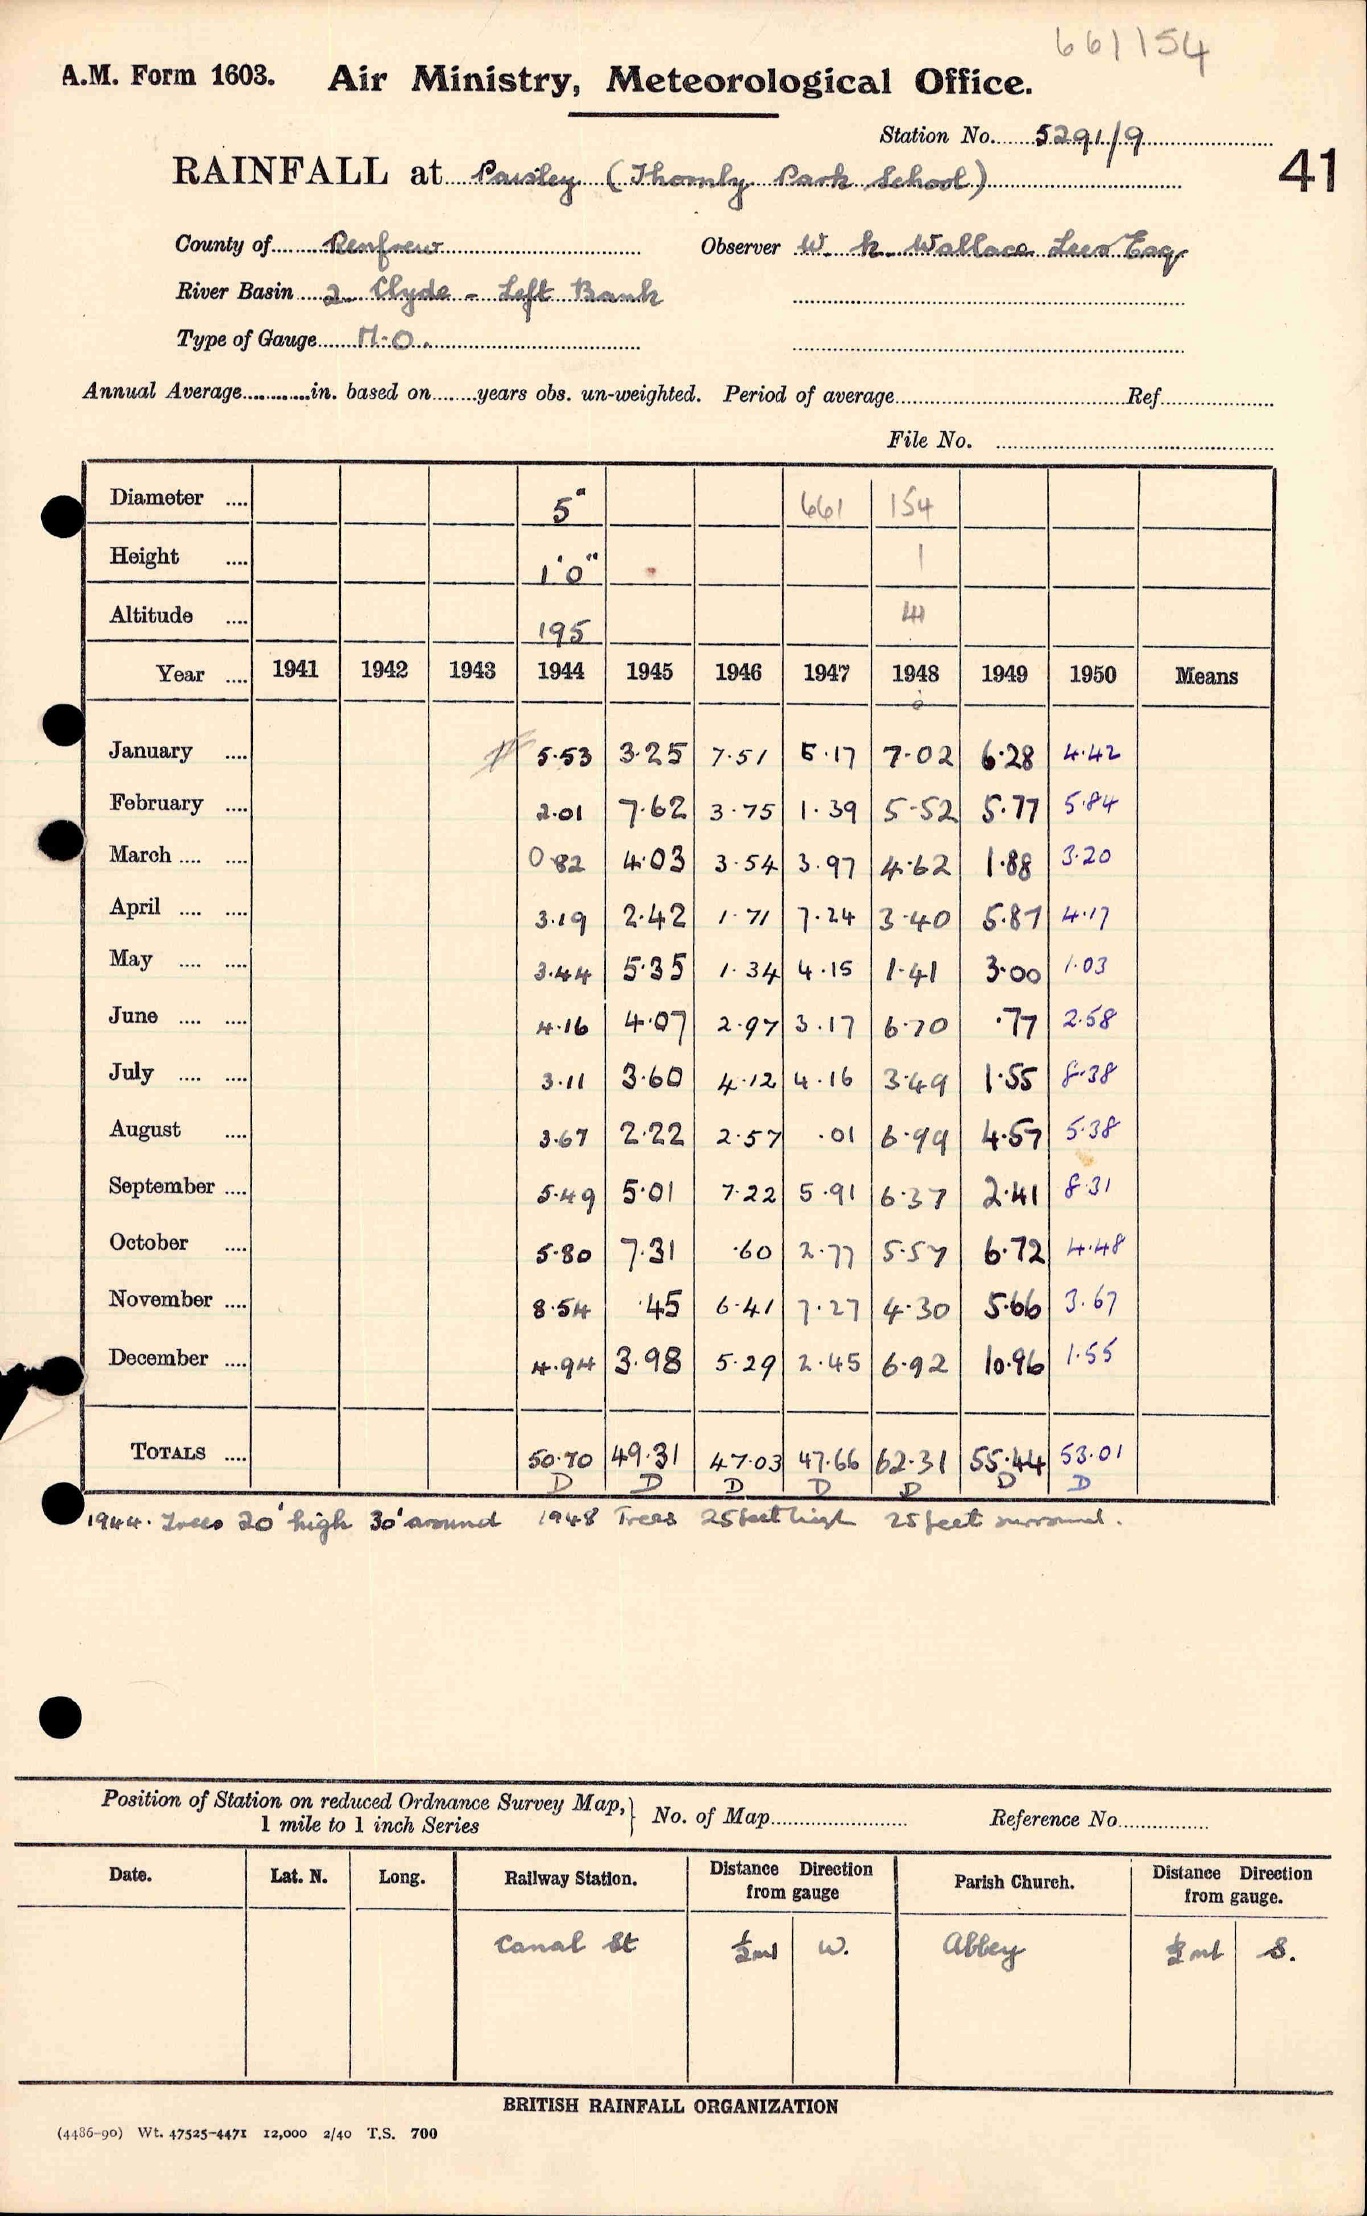 661154
A.M. Form 1603. Air Ministry, Meteorological Office.
Station No. 5291/9
RAINFALL at Paisley (Thornly Park School) 41
County of Renfrew Observer W. K. Wallace Lees Esq
River Basin 2. Clyde - Left Bank
Type of Gauge M.O.
Annual Average in. based on years obs. un-weighted. Period of average Ref
File No.
Diameter 5" 661 154
Height 1'0" 1
Altitude 195
Year 1941 1942 1943 1944 1945 1946 1947 1948 1949 1950 Means
January 5.53 3.25 7.51 5.17 7.02 6.28 4.42
February 2.01 7.62 3.75 1.39 5.52 5.77 5.84
March 0.82 4.03 3.54 3.97 4.62 1.88 3.20
April 3.19 2.42 1.71 7.24 3.40 5.87 4.17
May 3.44 5.35 1.34 4.15 1.41 3.00 1.03
June 4.16 4.07 2.97 3.17 6.70 .77 2.58
July 3.11 3.60 4.12 4.16 3.49 1.55 8.38
August 3.67 2.22 2.57 .01 6.99 4.57 5.38
September 5.49 5.01 7.22 5.91 6.37 2.41 8.31
October 5.80 7.31 .60 2.77 5.57 6.72 4.48
November 8.54 .45 6.41 7.27 4.30 5.66 3.67
December 4.94 3.98 5.29 2.45 6.92 10.96 1.55
TOTALS 50.70 49.31 47.03 47.66 62.31 55.44 53.01
D D D D D D D
1944. Trees 20' high 30' around 1948 Trees 25 feet high 25 feet surround.
Position of Station on reduced Ordnance Survey Map, 1 mile to 1 inch Series } No. of Map Reference No
Date. Lat. N. Long. Railway Station. Distance Direction from gauge Parish Church. Distance Direction from gauge.
Canal St ½ ml W. Abbey ½ ml S.
BRITISH RAINFALL ORGANIZATION
(4486-90) Wt. 47525-4471 12,000 2/40 T.S. 700